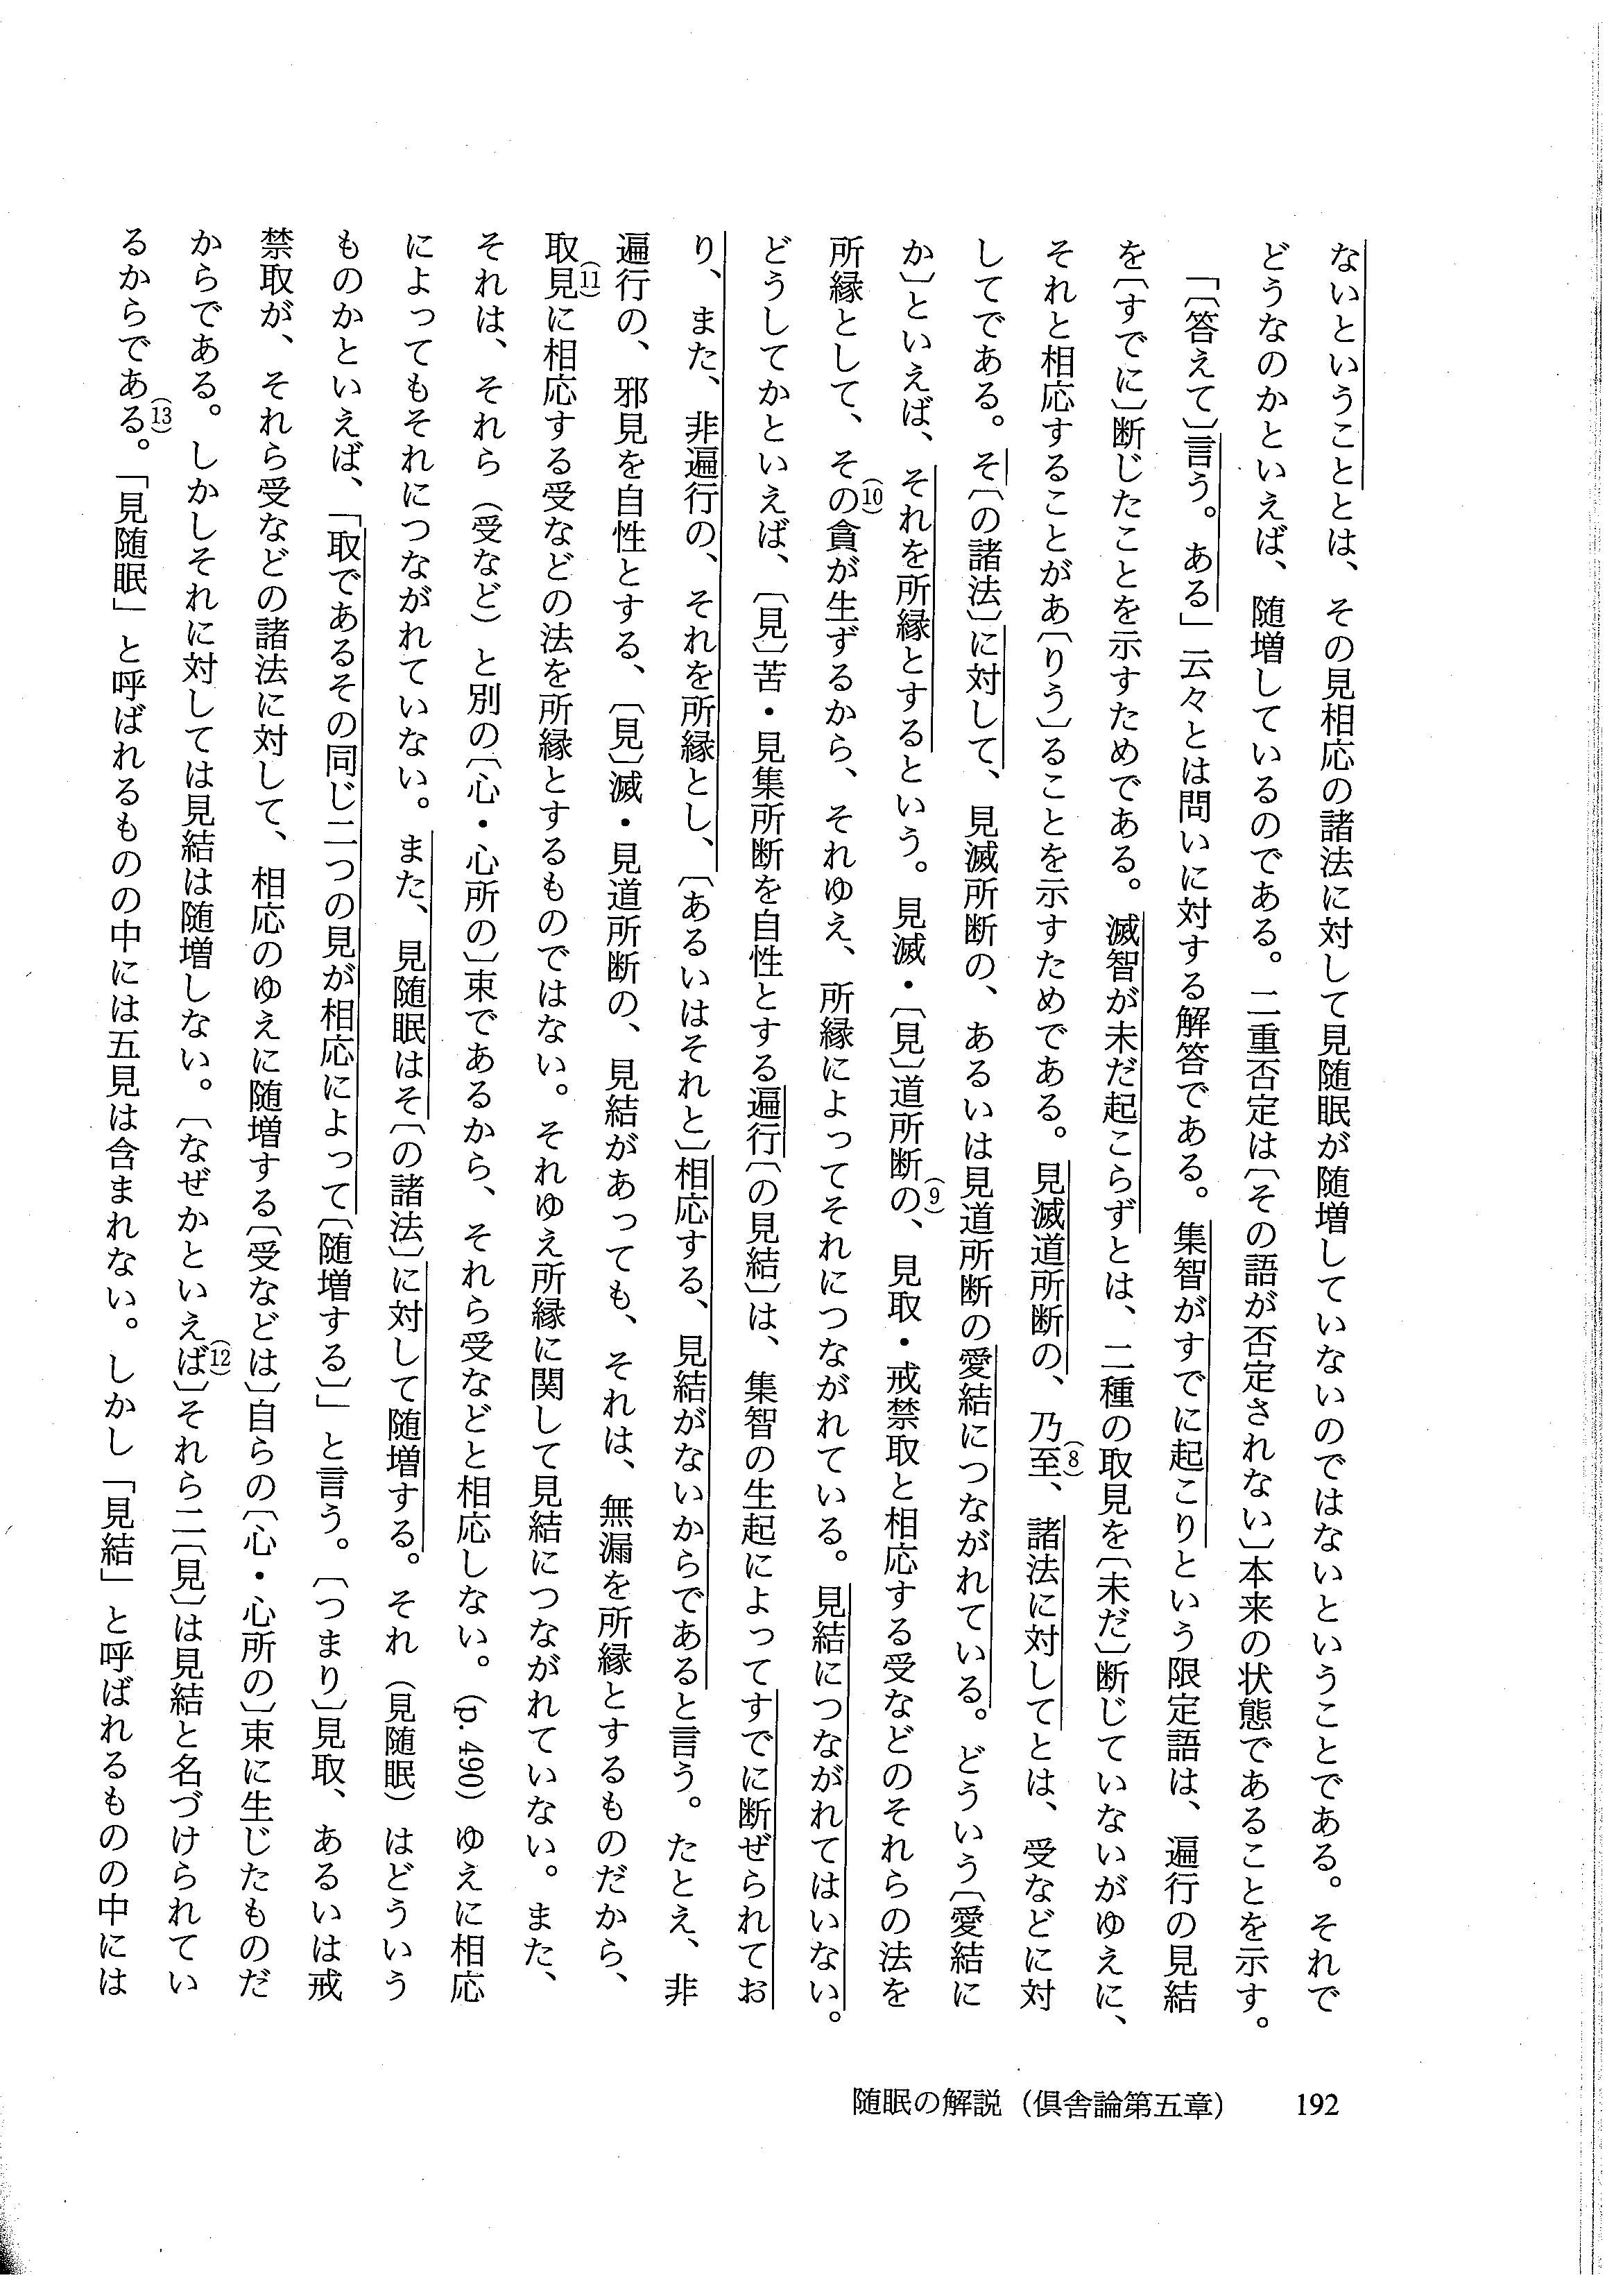 ないということとは、その見相応の諸法に対して見随眠が随増していないのではないということである。それで
どうなのかといえば、随増しているのである。二重否定は〔その語が否定されない〕本来の状態であることを示す。
「〔答えて〕言う。ある」云々とは問いに対する解答である。集智がすでに起こりという限定語は、遍行の見結
を〔すでに〕断じたことを示すためである。滅智が未だ起こらずとは、二種の取見を〔未だ〕断じていないがゆえに、
それと相応することがあ〔りう〕ることを示すためである。見滅道所断の、乃至(8)、諸法に対してとは、受などに対
してである。そ〔の諸法〕に対して、見滅所断の、あるいは見道所断の愛結につながれている。どういう〔愛結に
か〕といえば、それを所縁とするという。見滅・〔見〕道所断の(9)、見取・戒禁取と相応する受などのそれらの法を
所縁として、その(10)貪が生ずるから、それゆえ、所縁によってそれにつながれている。見結につながれてはいない。
どうしてかといえば、〔見〕苦・見集所断を自性とする遍行〔の見結〕は、集智の生起によってすでに断ぜられてお
り、また、非遍行の、それを所縁とし、〔あるいはそれと〕相応する、見結がないからであると言う。たとえ、非
遍行の、邪見を自性とする、〔見〕滅・見道所断の、見結があっても、それは、無漏を所縁とするものだから、
取見(11)に相応する受などの法を所縁とするものではない。それゆえ所縁に関して見結につながれていない。また、
それは、それら（受など）と別の〔心・心所の〕束であるから、それら受などと相応しない。(p. 490) ゆえに相応
によってもそれにつながれていない。また、見随眠はそ〔の諸法〕に対して随増する。それ（見随眠）はどういう
ものかといえば、「取であるその同じ二つの見が相応によって〔随増する〕」と言う。〔つまり〕見取、あるいは戒
禁取が、それら受などの諸法に対して、相応のゆえに随増する〔受などは〕自らの〔心・心所の〕束に生じたものだ
からである。しかしそれに対しては見結は随増しない。〔なぜかといえば(12)〕それら二〔見〕は見結と名づけられてい
るからである(13)。「見随眠」と呼ばれるものの中には五見は含まれない。しかし「見結」と呼ばれるものの中には
随眠の解説（倶舎論第五章） 192